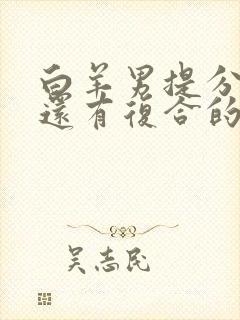 白羊男提分
還有復合的
吴志民